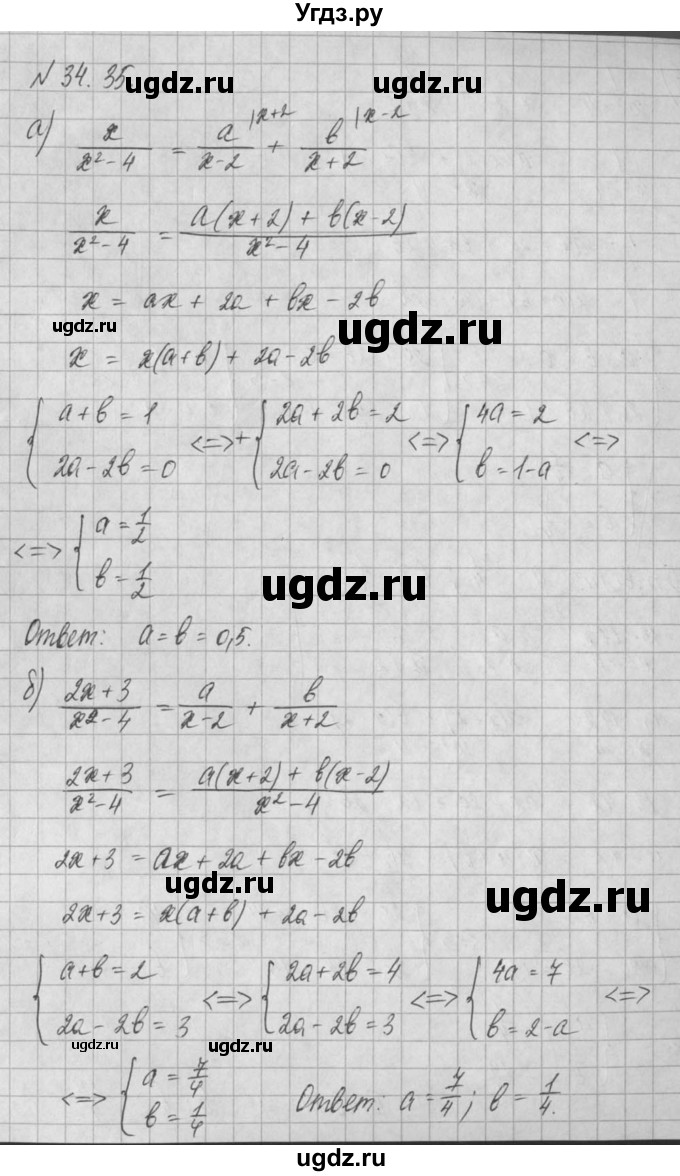 Угдз.ру
№ 34.35 ugdz.ru ugdz.ru
а) x/(x² - 4) = a/(x-2) |x+2 + b/(x+2) |x-2
ugdz.ru ugdz.ru
x/(x² - 4) = (a(x+2) + b(x-2))/(x² - 4)
x = ax + 2a + bx - 2b
ugdz.ru ugdz.ru
x = x(a+b) + 2a - 2b
{ a + b = 1; 2a - 2b = 0 <=> + { 2a + 2b = 2; 2a - 2b = 0 <=> { 4a = 2; b = 1 - a <=>
<=> { a = 1/2; b = 1/2
ugdz.ru
Ответ: a = b = 0,5.
б) (2x + 3)/(x² - 4) = a/(x-2) + b/(x+2)
ugdz.ru
(2x + 3)/(x² - 4) = (a(x+2) + b(x-2))/(x² - 4)
2x + 3 = ax + 2a + bx - 2b
ugdz.ru ugdz.ru
2x + 3 = x(a+b) + 2a - 2b
{ a + b = 2; 2a - 2b = 3 <=> { 2a + 2b = 4; 2a - 2b = 3 <=> { 4a = 7; b = 2 - a <=>
ugdz.ru ugdz.ru
<=> { a = 7/4; b = 1/4 Ответ: a = 7/4; b = 1/4.
ugdz.ru